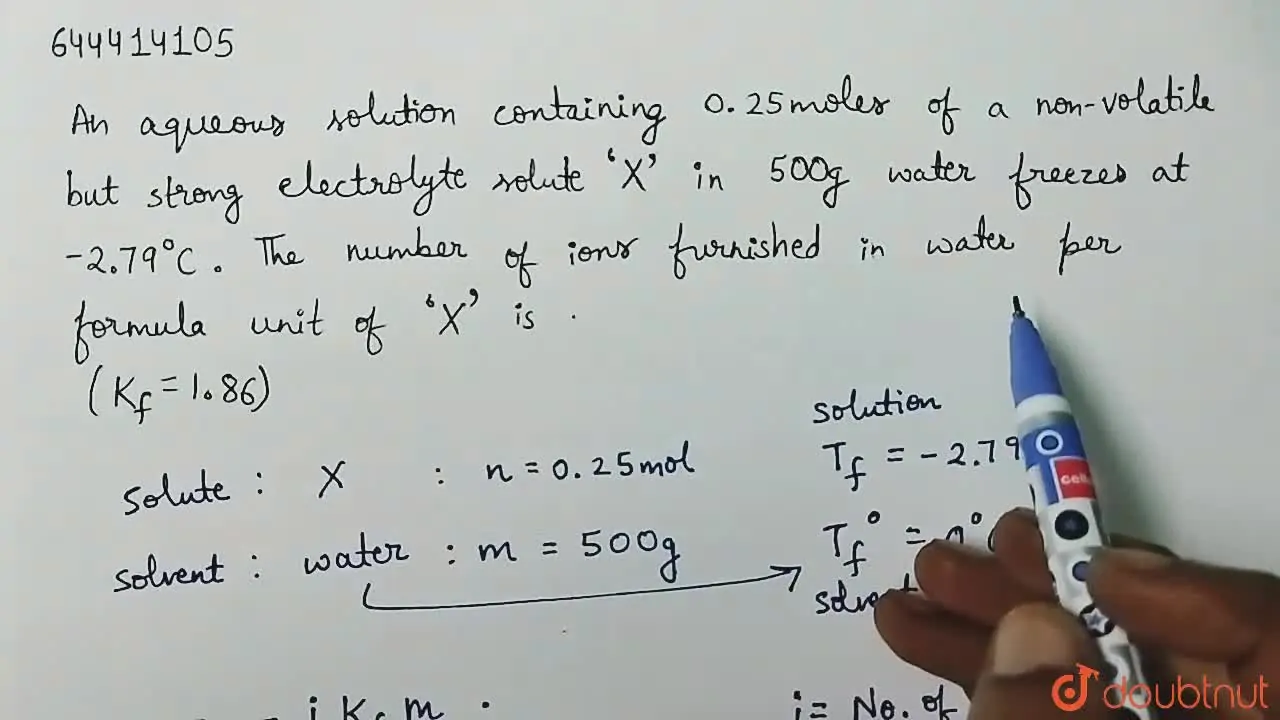 644414105
An aqueous solution containing 0.25moles of a non-volatile
but strong electrolyte solute 'X' in 500g water freezes at
-2.79°C. The number of ions furnished in water per
formula unit of 'X' is .
(Kf = 1.86)
solution
Solute : X : n = 0.25mol
Tf = -2.79
solvent : water : m = 500g
Tf° =
solvent
i Kf m .
i = No. of
doubtnut